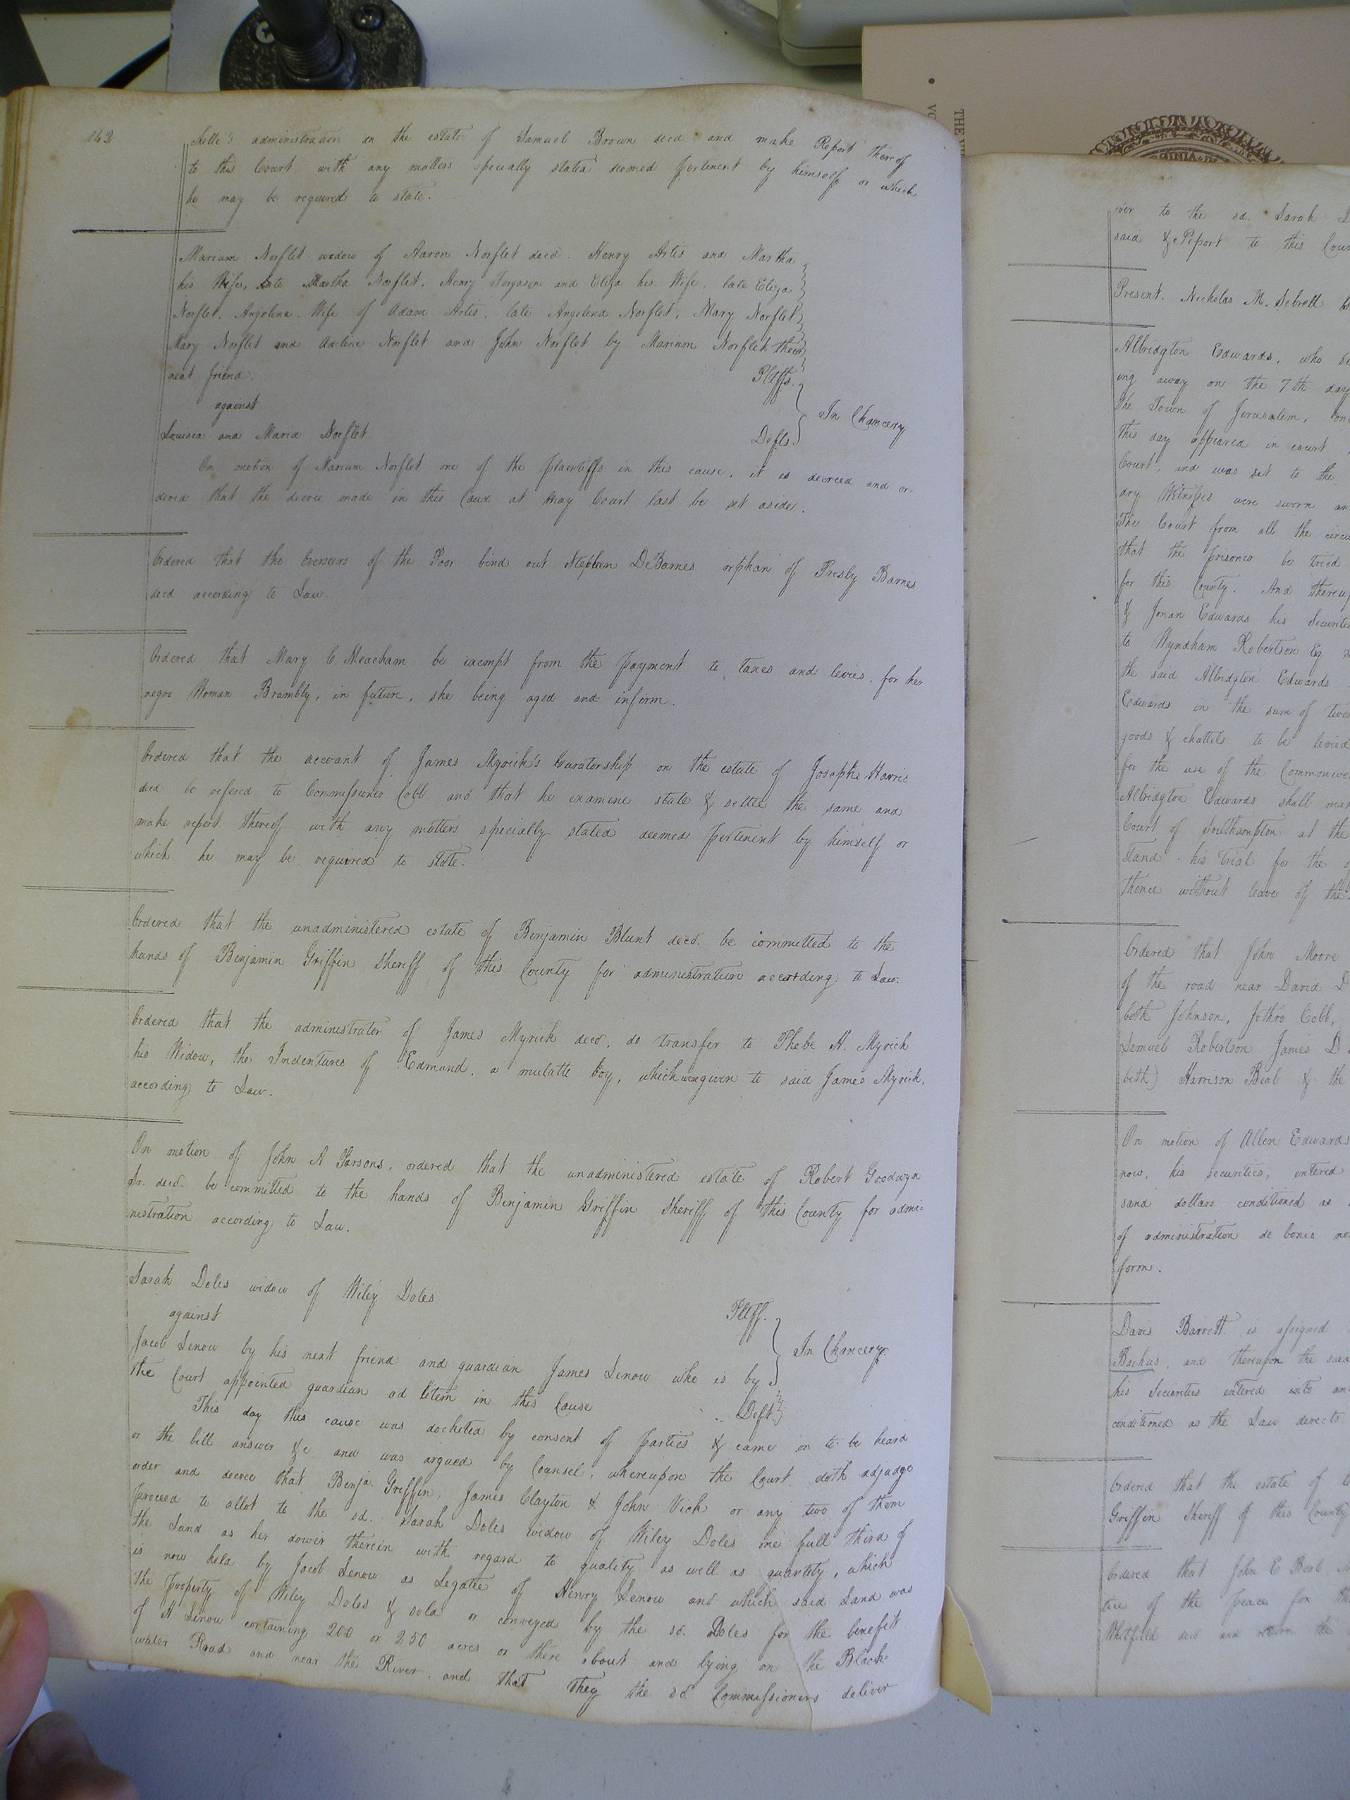 142
administration on the estate of Samuel Brown decd and make Report thereof
to this Court with any matters specially stated deemed pertinent by himself or which
he may be required to state.
Marium Norflet widow of Aaron Norflet decd. Henry Artis and Martha
his Wife, late Martha Norflet, Henry Ferguson and Eliza his Wife, late Eliza
Norflet, Anjelina Wife of Adam Artis, late Anjelina Norflet, Mary Norflet
Mary Norflet and Adeline Norflet and John Norflet by Marium Norflet their
next friend.
Pltffs.
against
In Chancery
Louisia and Maria Norflet
Defts.
On motion of Marium Norflet one of the plaintiffs in this cause, it is decreed and or-
dered that the decree made in this Cause at May Court last be set aside.
Ordered that the Overseers of the Poor bind out Stephen DeBarnes orphan of Presly Barnes
decd according to Law.
Ordered that Mary C. Meacham be exempt from the payment to taxes and levies, for her
negro Woman Brambly, in future, she being aged and infirm.
Ordered that the account of James Myrick's Curatorship on the estate of Josephs Harris
decd be refered to Commissioner Cobb and that he examine state & settle the same and
make report thereof with any matters specially stated deemed pertinent by himself or
which he may be required to state.
Ordered that the unadministered estate of Benjamin Blunt decd. be committed to the
hands of Benjamin Griffin Sheriff of this County for administration according to Law.
Ordered that the administrator of James Myrick decd, do transfer to Phebe A. Myrick
his Widow, the Indentures of Edmund, a mulatto boy, which was given to said James Myrick,
according to Law.
On motion of John A Parsons, ordered that the unadministered estate of Robert Goodwyn
Sr. decd. be committed to the hands of Benjamin Griffin Sheriff of this County for admi-
nistration according to Law.
Sarah Doles widow of Wiley Doles
Pltff.
against
In Chancery
Jacob Lenow by his next friend and guardian James Lenow who is by
the Court appointed guardian ad litem in this Cause
Deft.
This day this cause was docketed by consent of parties & came on to be heard
on the bill answer &c and was argued by Counsel, whereupon the Court doth adjudge
order and decree that Benja. Griffin, James Clayton & John Vick or any two of them
proceed to allot to the sd. Sarah Doles widow of Wiley Doles one full third of
the Land as her dower therein with regard to quality as well as quantity, which
is now held by Jacob Lenow as Legatee of Henry Lenow and which said Land was
the property of Wiley Doles & sold or conveyed by the sd. Doles for the benefit
of H Lenow containing 200 or 250 acres or there about and lying on the Black-
water Road and near the River and that they the sd Commissioners deliver
over to the sd. Sarah
said & Report to this Cour
Present. Nicholas M. Sebrell
Albridgton Edwards, who
ing away on the 7th day
the Town of Jerusalem, on
this day appeared in court
Court, and was set to the
ary Witnesses were sworn an
The Court from all the circu
that the prisoner be tried
for this County. And thereup
& Jonan Edwards his Securities
to Wyndham Robertson Esq
the said Albridgton Edwards
Edwards in the sum of
goods & chattels to be levied
for the use of the Commonwe
Albridgton Edwards shall mak
Court of Southampton at the
stand his trial for the
thence without leave of the
Ordered that John Moore
of the road near David D
beth Johnson, Jethro Cobb,
Lemuel Robertson James D
beth) Harrison Beal & the
On motion of Allen Edwards
now, his securities, entered
sand dollars conditioned as
of administration de bonis no
form.
Davis Barrett is assigned
Backus, and thereupon the said
his Securities entered into an
conditioned as the Law directs
Ordered that the estate of
Griffin Sheriff of this County
Ordered that John E Beal
tice of the peace for th
Whitfield decd and return the